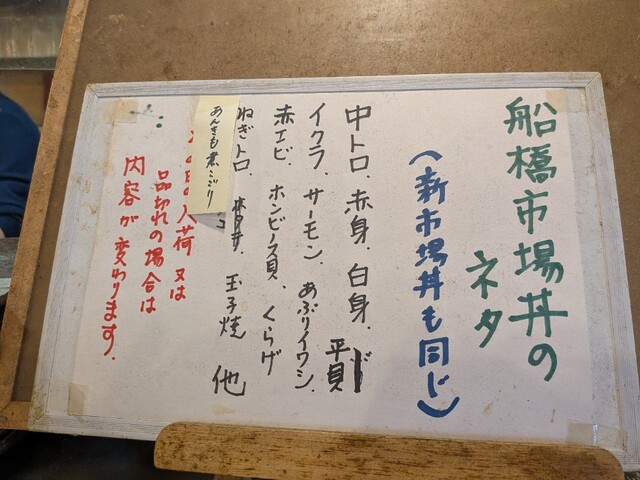 船橋市場丼の
ネタ
(新市場丼も同じ)
中トロ、赤身、白身、平貝
イクラ、サーモン、あぶりイワシ、
赤エビ、ホンビノス貝、くらげ
ねぎトロ、玉子焼 他
あんきも煮こごり
入荷又は
品切れの場合は
内容が変わります。